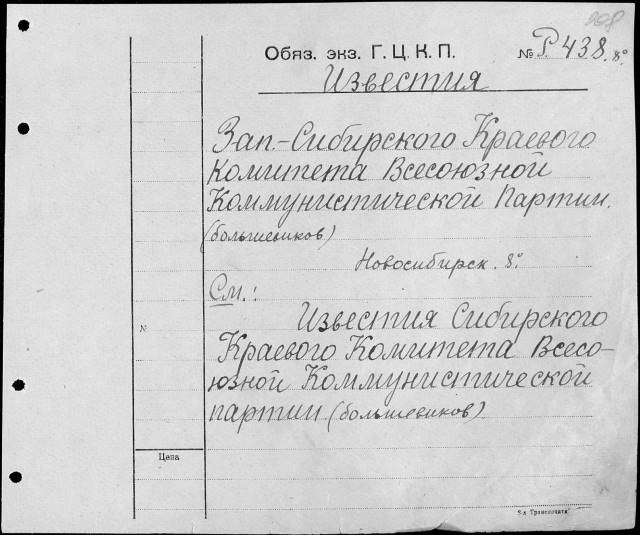 908
Обяз. экз. Г.Ц.К.П. № Р438. 8°
Известия
Зап.-Сибирского Краевого
Комитета Всесоюзной
Коммунистической Партии.
(большевиков)
Новосибирск. 8°.
См.:
Известия Сибирского
№
Краевого Комитета Всесо-
юзной Коммунистической
партии (большевиков)
Цена